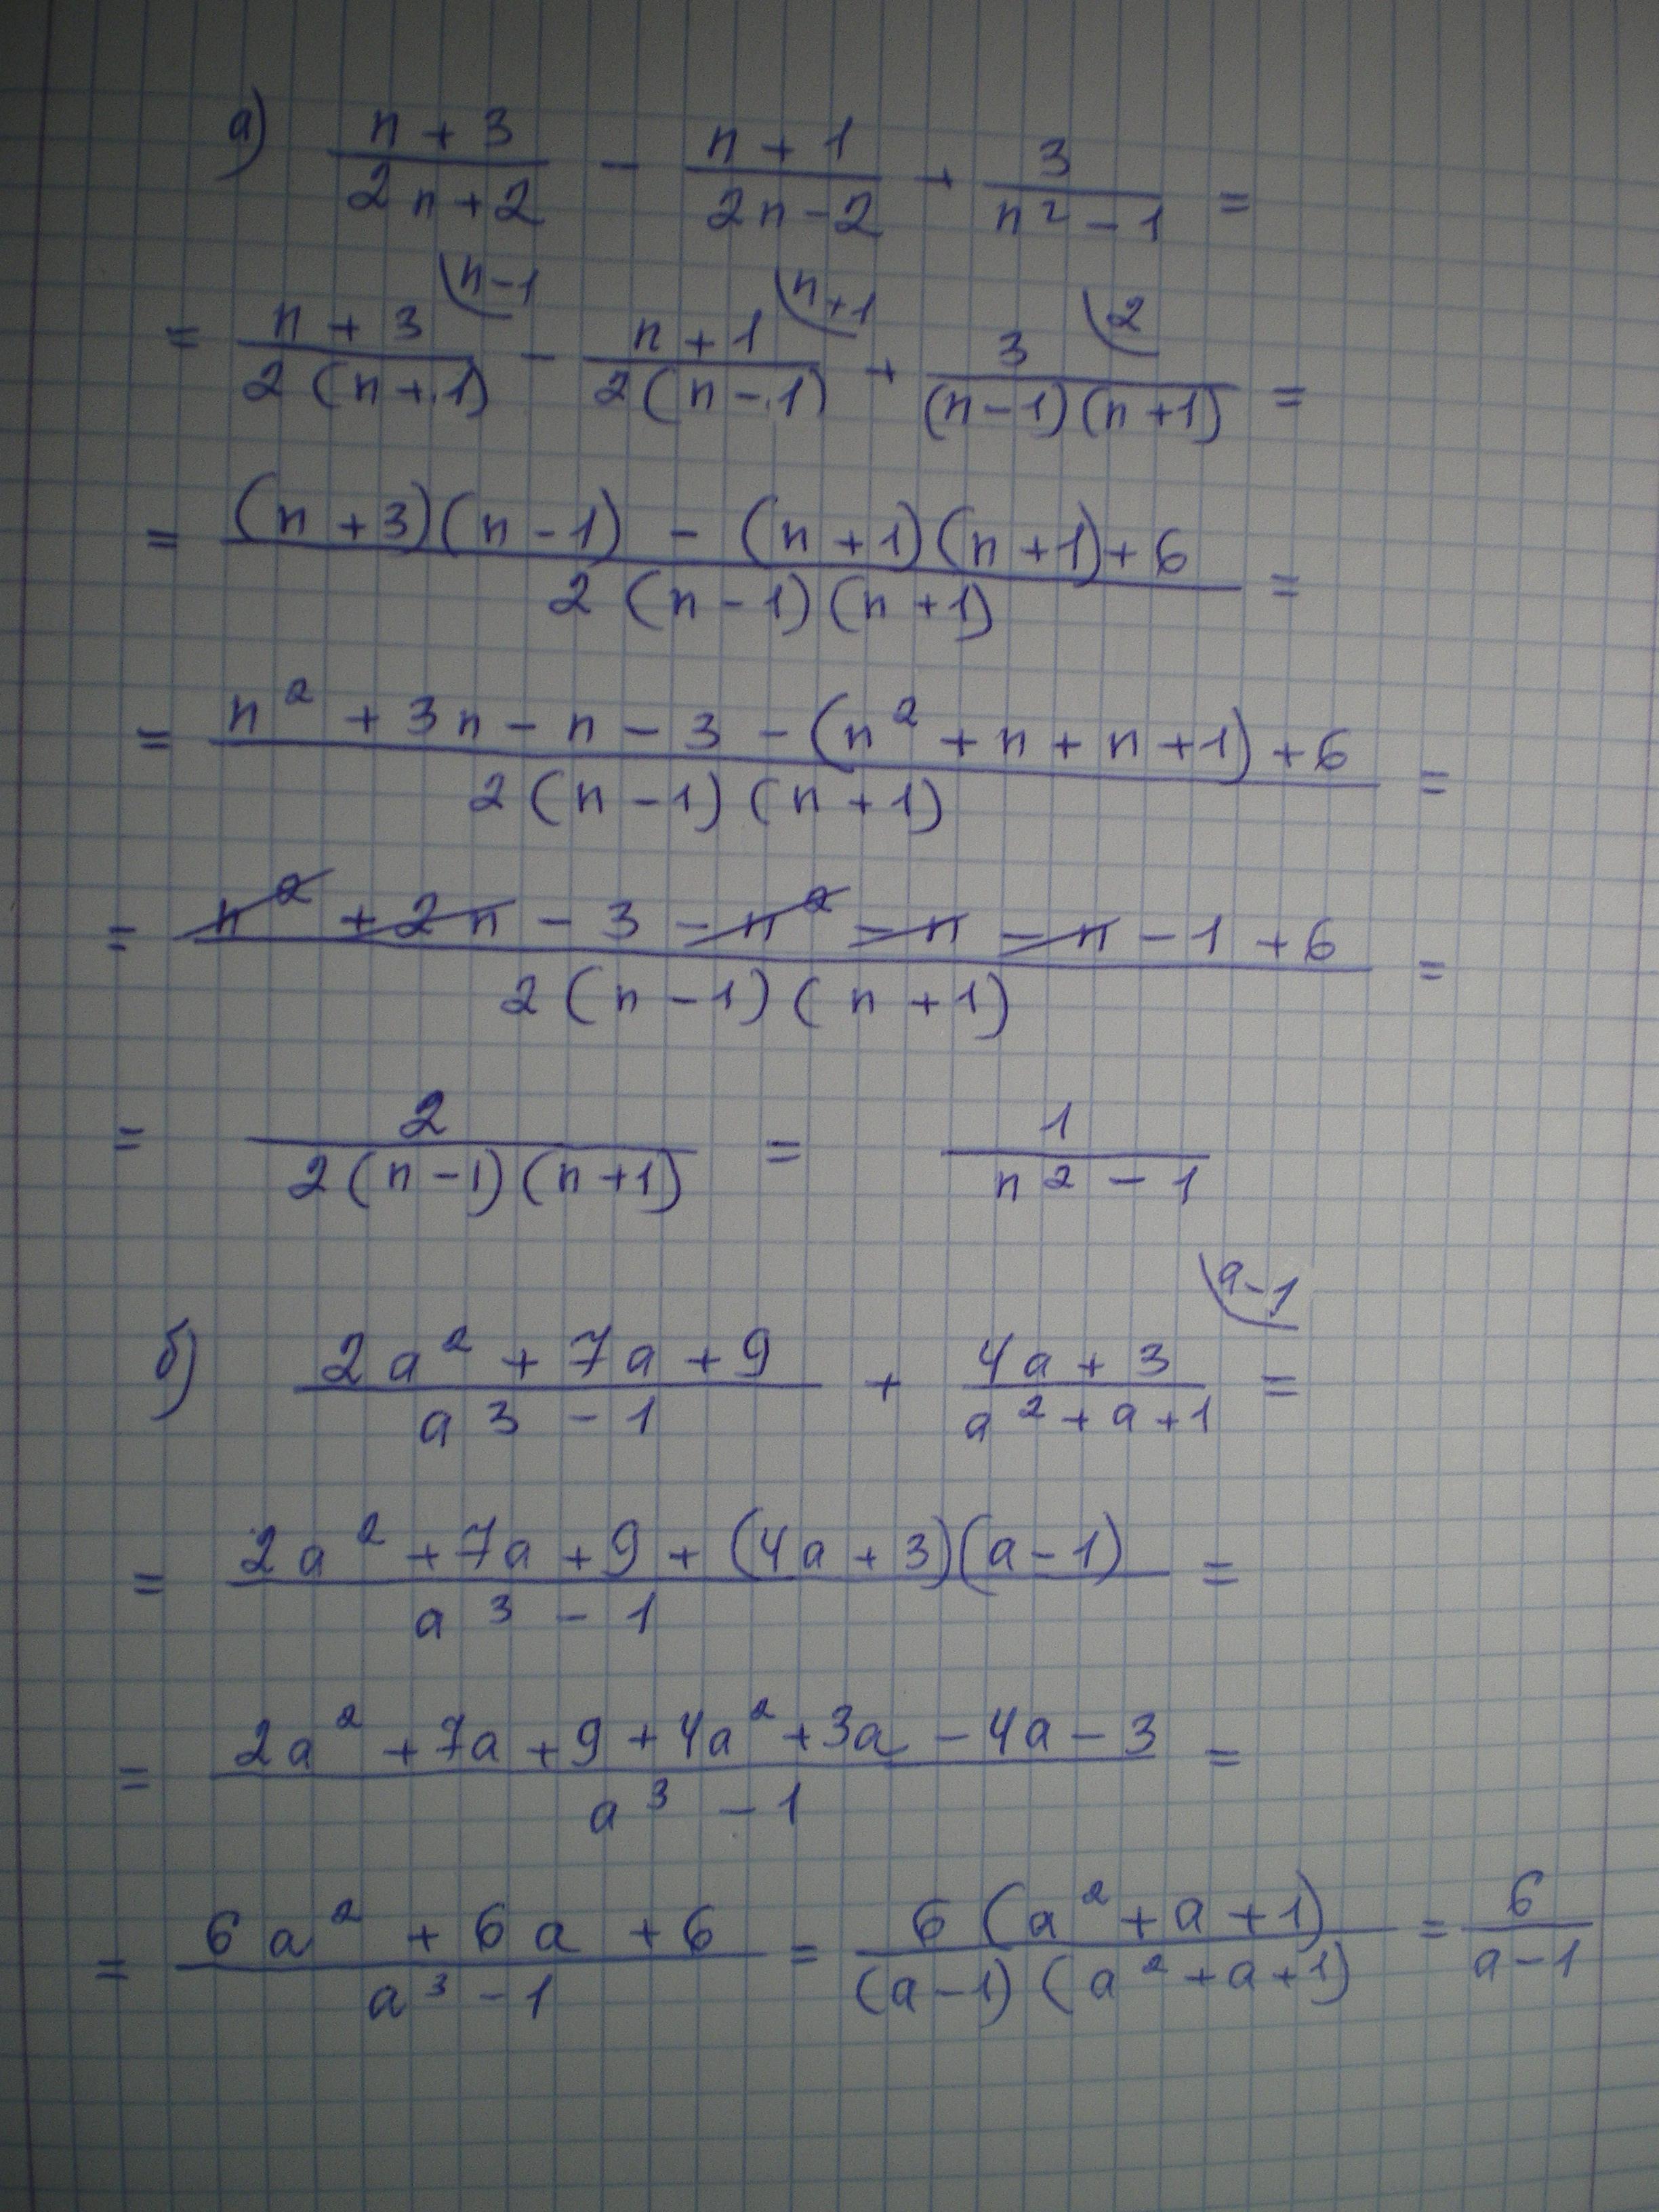 а) (n + 3)/(2n + 2) - (n + 1)/(2n - 2) + 3/(n² - 1) =
= (n + 3)/(2(n + 1)) \n-1 - (n + 1)/(2(n - 1)) \n+1 + 3/((n-1)(n+1)) \2 =
= ((n + 3)(n - 1) - (n + 1)(n + 1) + 6)/(2(n - 1)(n + 1)) =
= (n² + 3n - n - 3 - (n² + n + n + 1) + 6)/(2(n - 1)(n + 1)) =
= (n² + 2n - 3 - n² - n - n - 1 + 6)/(2(n - 1)(n + 1)) =
= 2/(2(n - 1)(n + 1)) = 1/(n² - 1)
б) (2a² + 7a + 9)/(a³ - 1) + (4a + 3)/(a² + a + 1) \a-1 =
= (2a² + 7a + 9 + (4a + 3)(a - 1))/(a³ - 1) =
= (2a² + 7a + 9 + 4a² + 3a - 4a - 3)/(a³ - 1) =
= (6a² + 6a + 6)/(a³ - 1) = (6(a² + a + 1))/((a - 1)(a² + a + 1)) = 6/(a - 1)